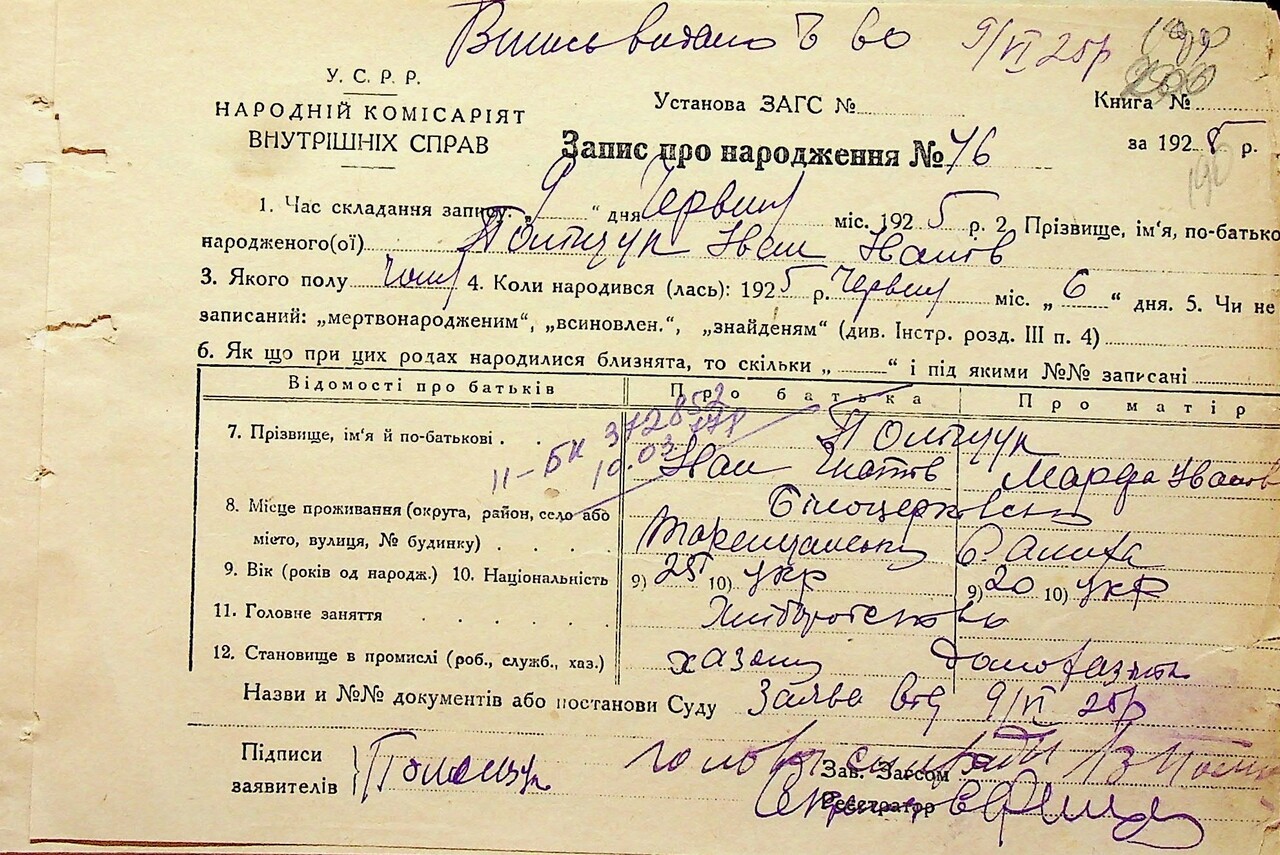 Випись видано 9/VI 25р
У. С. Р. Р.
НАРОДНІЙ КОМІСАРІЯТ
ВНУТРІШНІХ СПРАВ
Установа ЗАГС №
Книга №
Запис про народження № 76
за 1925 р.
190
1. Час складання запису: „ 9 “ дня Червня міс. 1925 р. 2 Прізвище, ім'я, по-батько
народженого(ої) Поліщук Іван Іванів
3. Якого полу чол 4. Коли народився (лась): 1925 р. Червня міс. „ 6 “ дня. 5. Чи не
записаний: „мертвонародженим“, „всиновлен.“, „знайденям“ (див. Інстр. розд. III п. 4)
6. Як що при цих родах народилися близнята, то скільки „ “ і під якими №№ записані
Відомості про батьків Про батька Про матір
7. Прізвище, ім'я й по-батькові . . Поліщук
Іван Марфа Іванов
II-БК 372852
10.03
8. Місце проживання (округа, район, село або
місто, вулиця, № будинку) . . . . Білоцерковськ
Таращанськ
9. Вік (років од народж.) 10. Національність 9) 25 10) укр 9) 20 10) укр
11. Головне заняття . . . . . . Хліборобство
12. Становище в промислі (роб., служб., хаз.) хазяїн
Назви и №№ документів або постанови Суду Заява від 9/VI 25р
Підписи
заявителів Поліщук
голова сільради
Зав. Загсом
Реєстратор